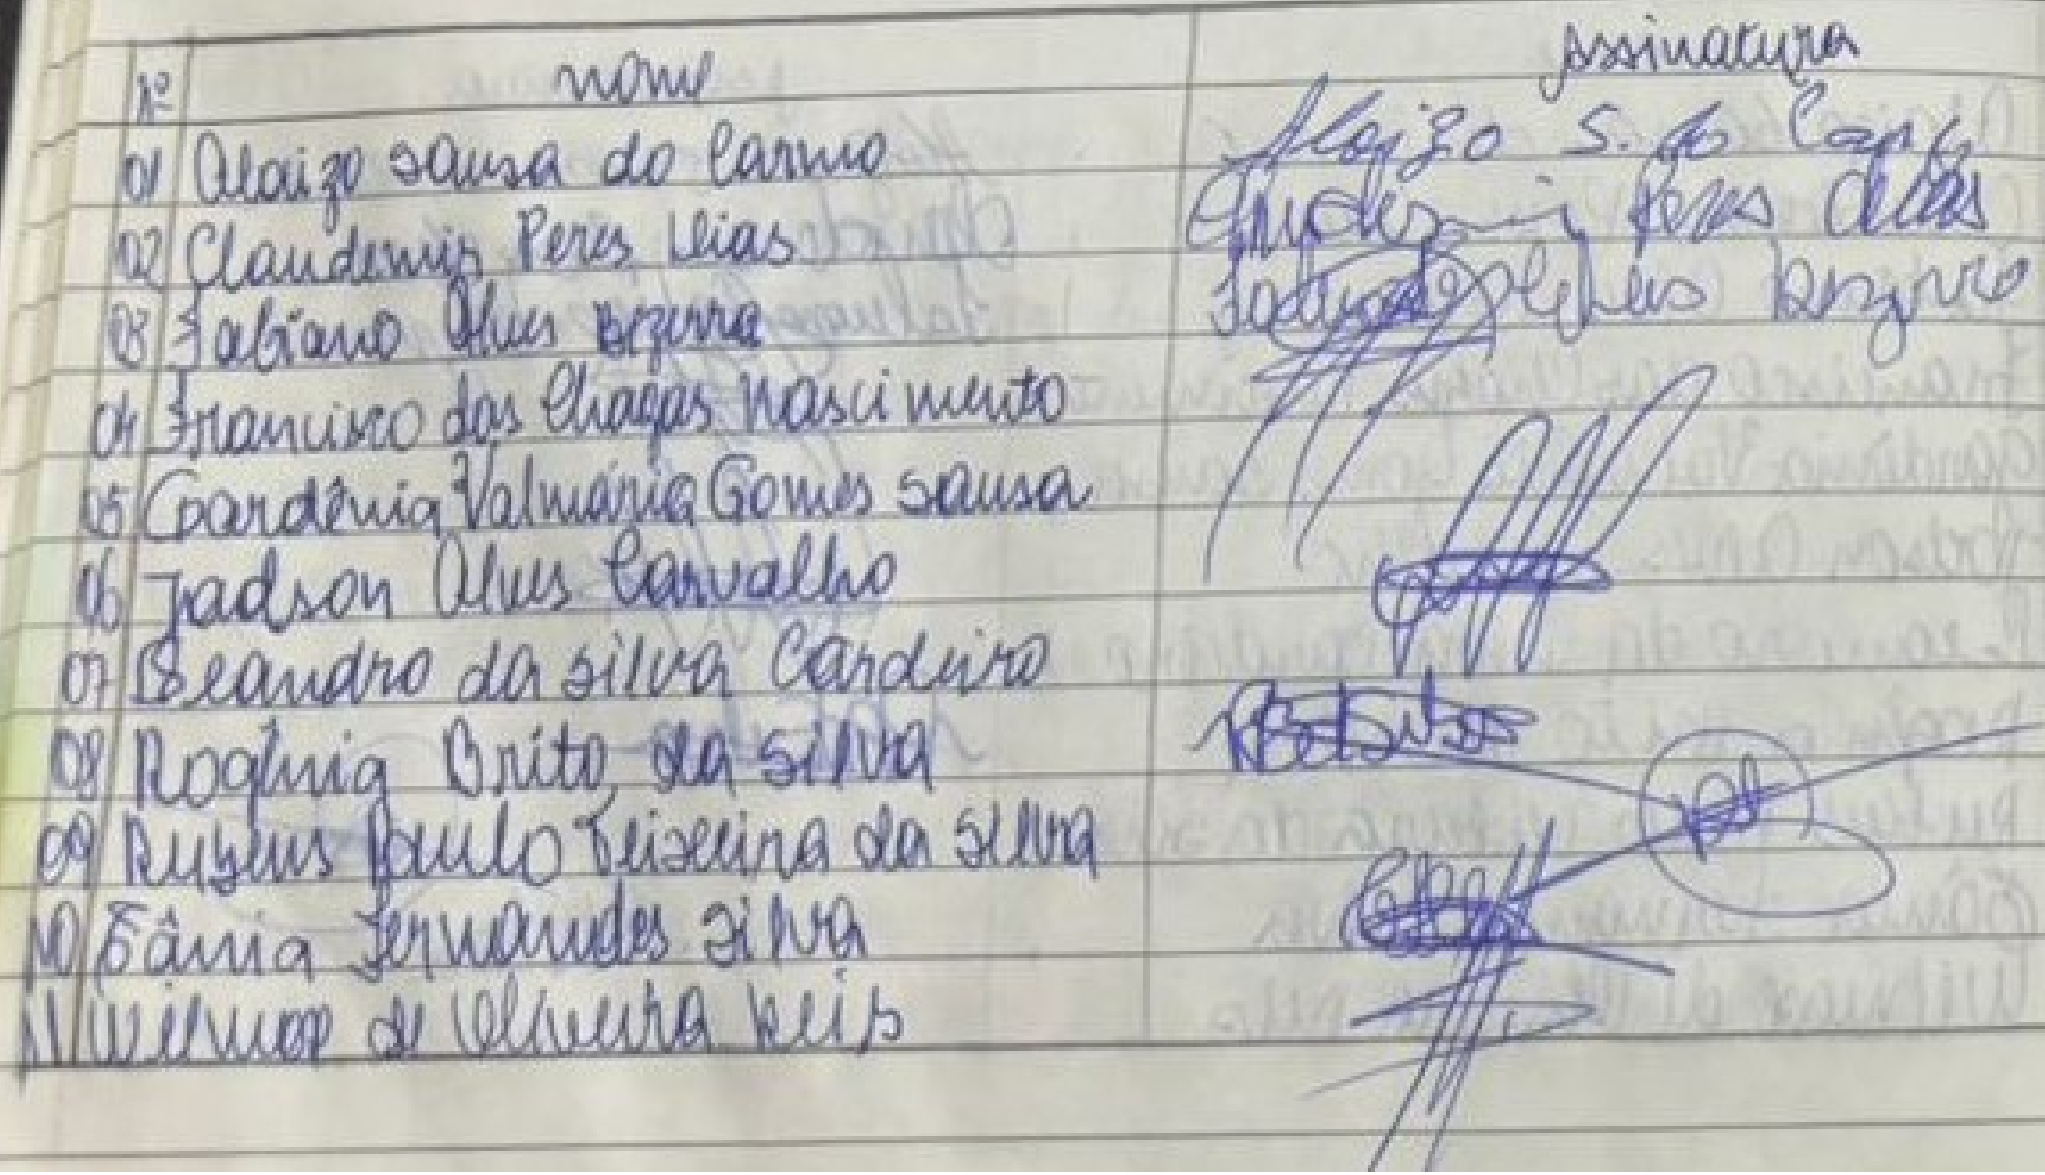 Nº nome Assinatura
01 Alaizo Sousa do Carmo Alaizo S. do Carmo
02 Claudemir Peres Dias Claudemir Peres Dias
03 Fabiano Alves Bezerra Fabiano Alves Bezerra
04 Francisco das Chagas Nascimento
05 Gardênia Valmária Gomes Sousa
06 Jadson Alves Carvalho
07 Leandro da Silva Cardeiro
08 Rogênia Brito da Silva
09 Rubens Paulo Teixeira da Silva
10 Tânia Fernandes Silva
11 de Oliveira Reis